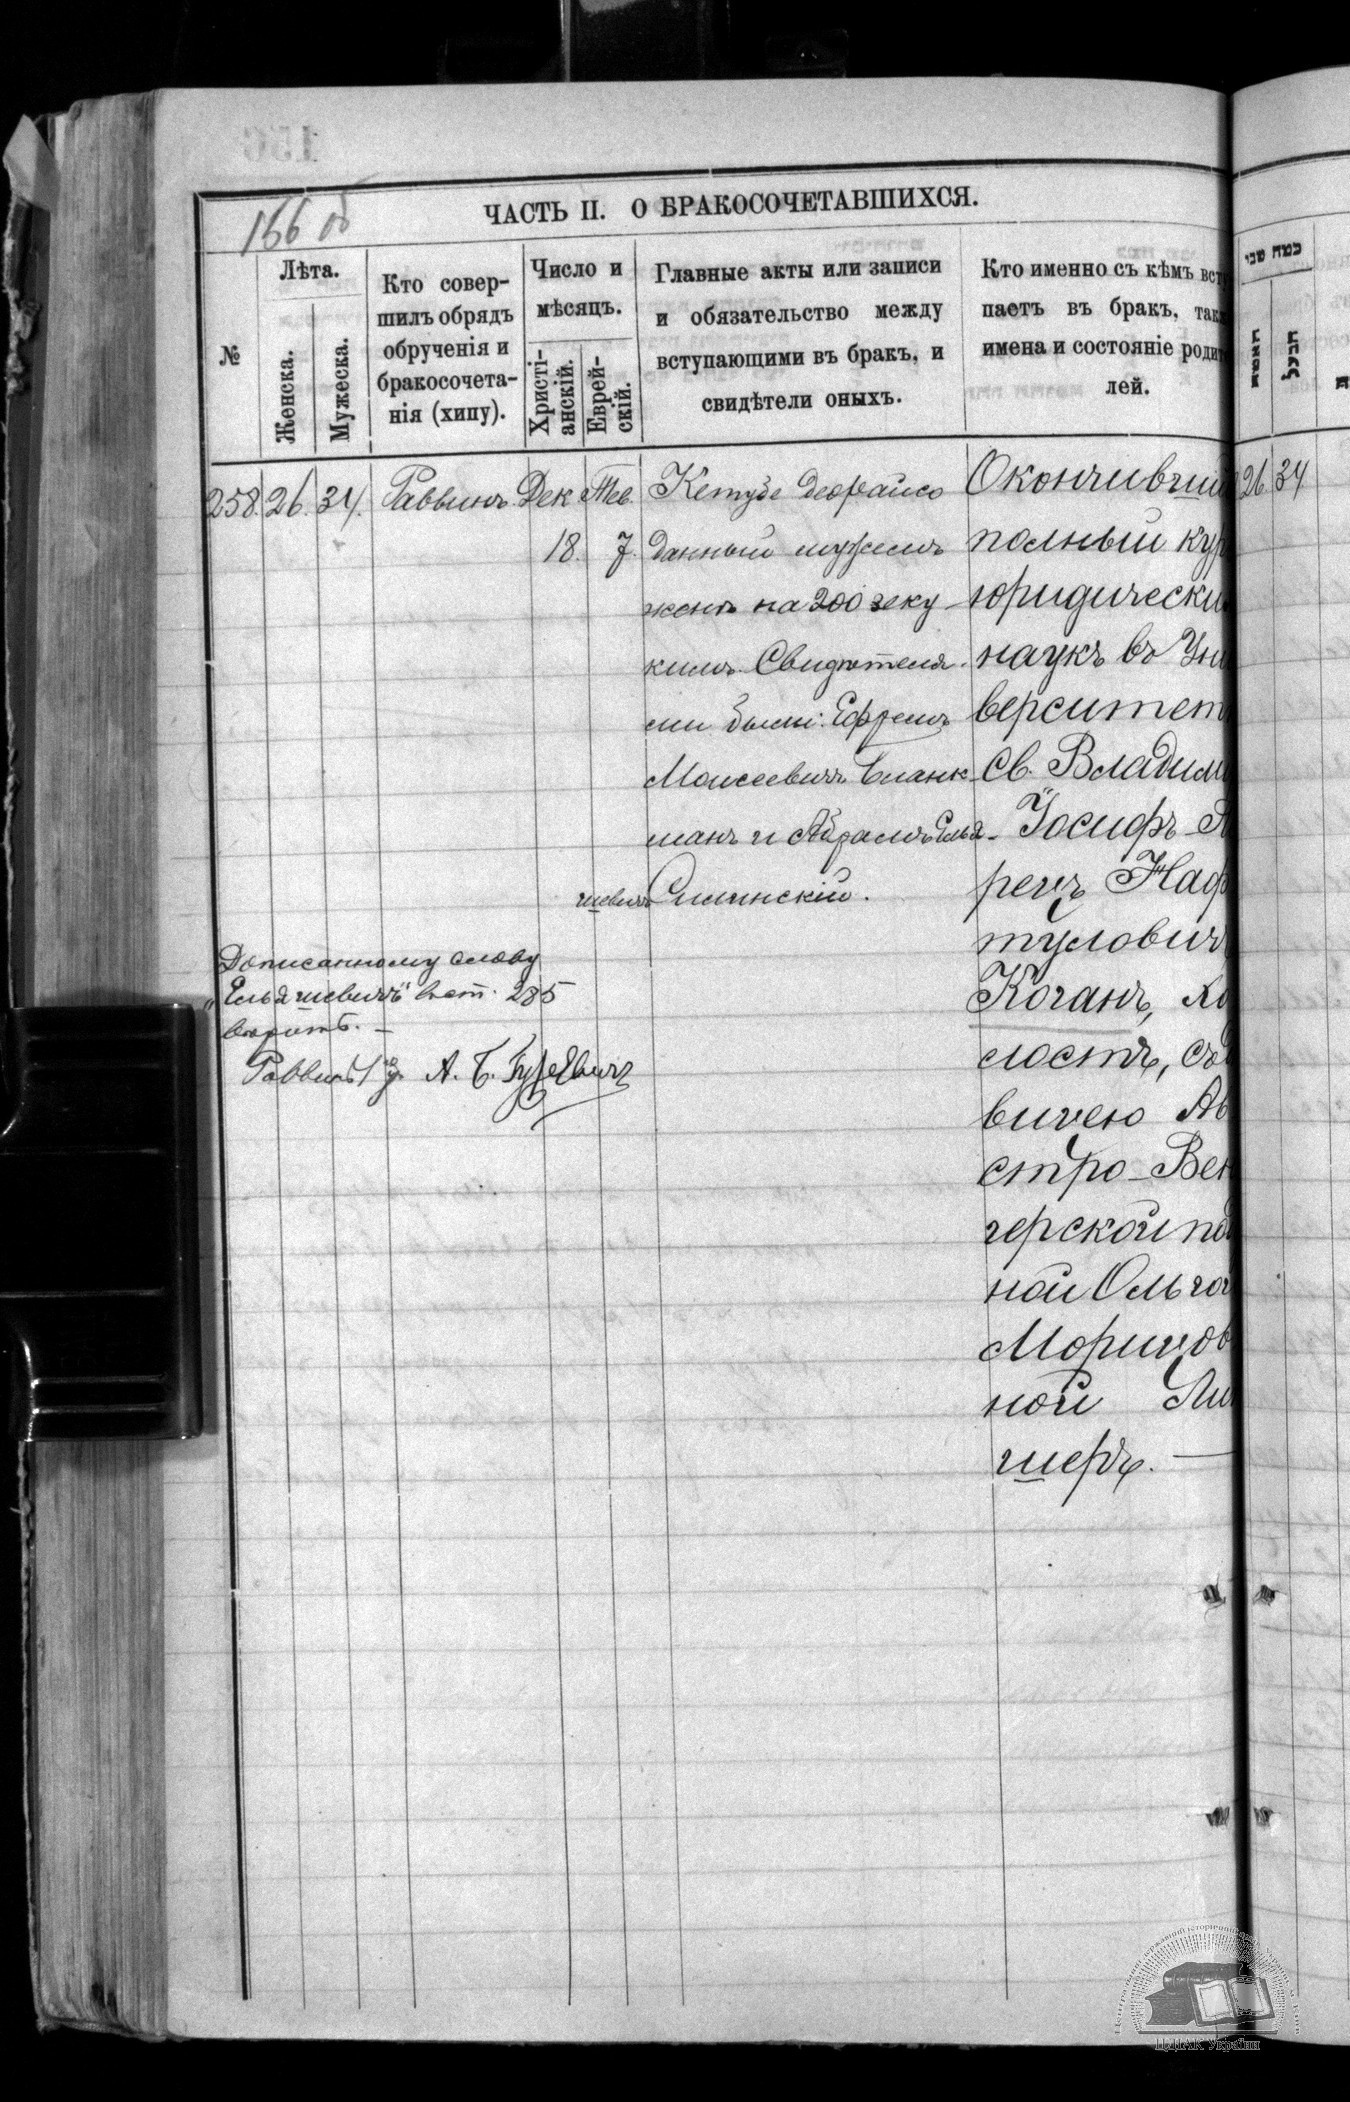 156 об
ЧАСТЬ II. О БРАКОСОЧЕТАВШИХСЯ.
№
Лѣта.
Женска.
Мужеска.
Кто совер-
шилъ обрядъ
обрученія и
бракосочета-
нія (хипу).
Число и
мѣсяцъ.
Христі-
анскій.
Еврей-
скій.
Главные акты или записи
и обязательство между
вступающими въ бракъ, и
свидѣтели оныхъ.
Кто именно съ кѣмъ всту
паетъ въ бракъ, так
имена и состояніе родит
лей.
כמה שני
האשה
הבעל
258. 26. 34. Раввинъ. Дек Тев.
18. 7.
Кетубе деорайсо
данный мужемъ
женѣ на 200 зеку
кимъ. Свидѣтеля-
ми были: Ефремъ
Моисеевичъ Бланк-
манъ и Абрамъ Елья-
шевичъ Слимскій.
Окончившій
полный кур
юридически
наукъ въ Уни
верситет
Св. Владими
Іосифъ-А
ренъ Наф
тулович
Коганъ, хо
лостъ, съ
вицею Ав
стро-Вен
герской под
ной Ольгой
Морицов
ной Ли
шеръ. —
26. 34
Дописанному слову
„Ельяшевичъ" в ст. 285
вѣрить. —
Раввинъ А. Б. Гуревичъ
ЦДІАК України